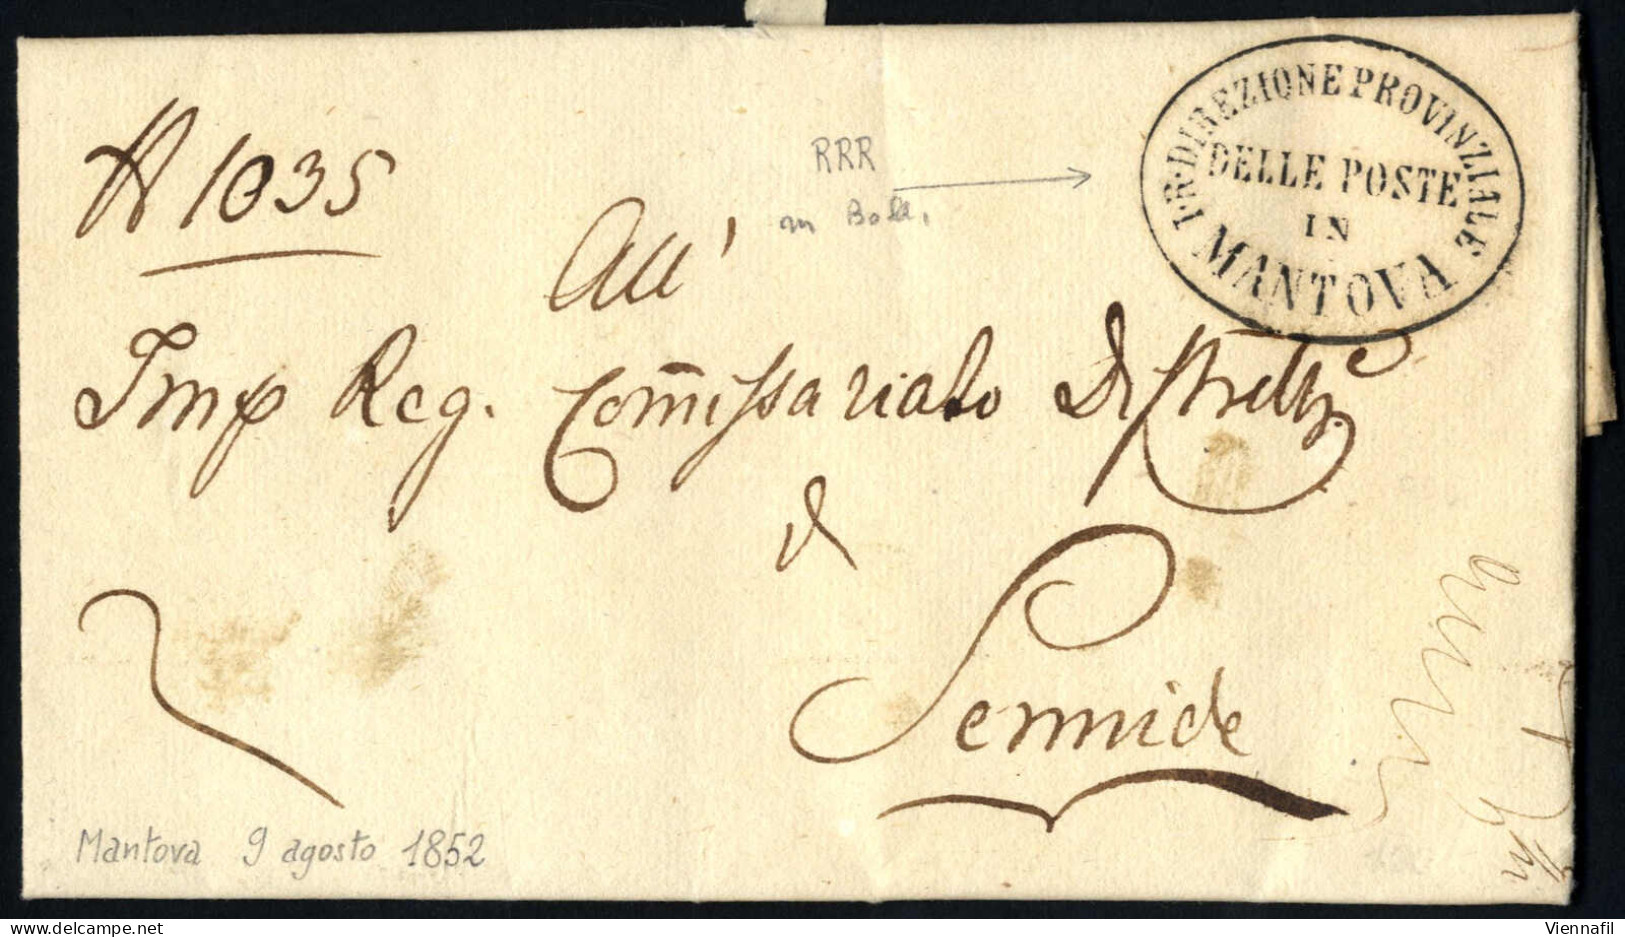 N 1035
RRR
I·R·DIREZIONE PROVINZIALE
DELLE POSTE
IN
MANTOVA
All'
Imp Reg. Comissariato Distrett.e
di
Sermide
Mantova 9 agosto 1852
Viennafil